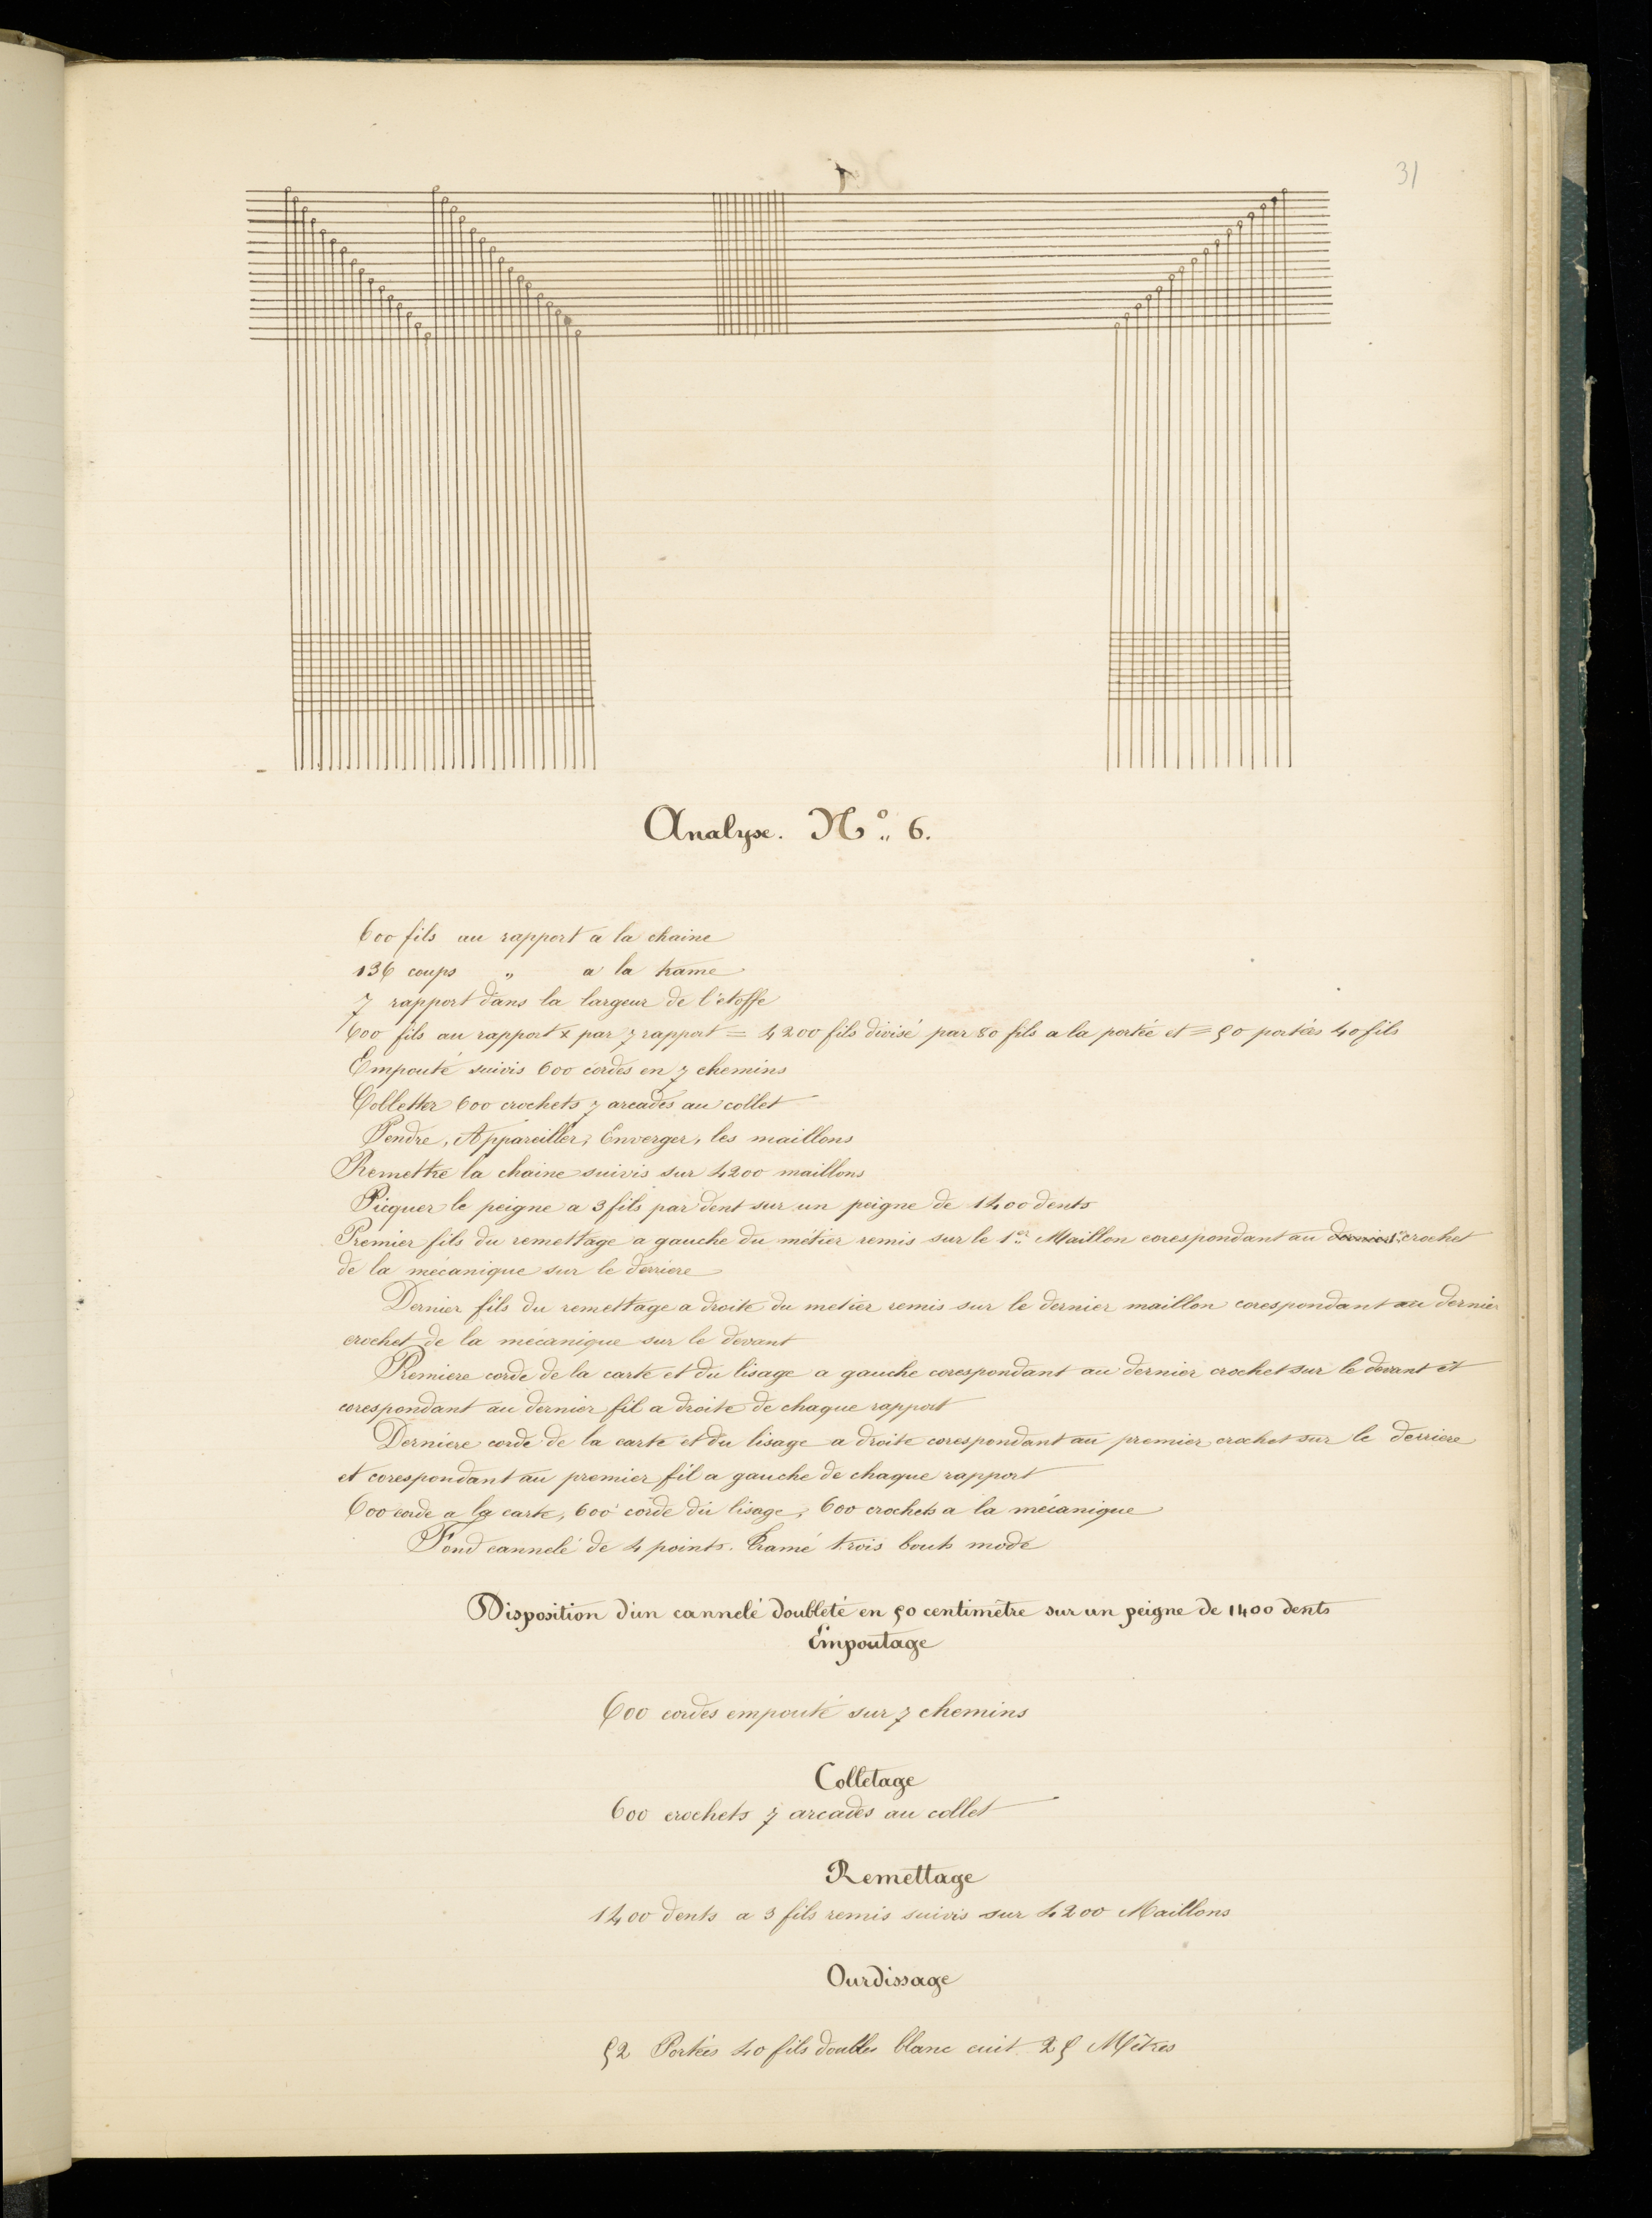 31
Analyse. Nº 6.
600 fils au rapport a la chaine
136 coups " a la trame
7 rapport dans la largeur de l'étoffe
600 fils au rapport x par 7 rapport = 4200 fils divisé par 80 fils a la portée et = 50 portées 40 fils
Empouté suivis 600 cordes en 7 chemins
Colletter 600 crochets 7 arcades au collet
Pendre, Appareiller, Enverger, les maillons
Remettre la chaine suivis sur 4200 maillons
Picquer le peigne a 3 fils par dent sur un peigne de 1400 dents
Premier fils du remettage a gauche du métier remis sur le 1er Maillon corespondant au 1er crochet
de la mecanique sur le derriere
Dernier fils du remettage a droite du metier remis sur le dernier maillon corespondant au dernier
crochet de la mécanique sur le devant
Premiere corde de la carte et du lisage a gauche corespondant au dernier crochet sur le devant et
corespondant au dernier fil a droite de chaque rapport
Derniere corde de la carte et du lisage a droite corespondant au premier crochet sur le derriere
et corespondant au premier fil a gauche de chaque rapport
600 corde a la carte, 600 corde du lisage, 600 crochets a la mécanique
Fond cannelé de 4 points. Tramé trois bouts mode
Disposition d'un cannelé doubleté en 50 centimètre sur un peigne de 1400 dents
Empoutage
600 cordes empouté sur 7 chemins
Colletage
600 crochets 7 arcades au collet
Remettage
1400 dents a 3 fils remis suivis sur 4200 Maillons
Ourdissage
52 Portées 40 fils doubles blanc cuit 25 Mètres